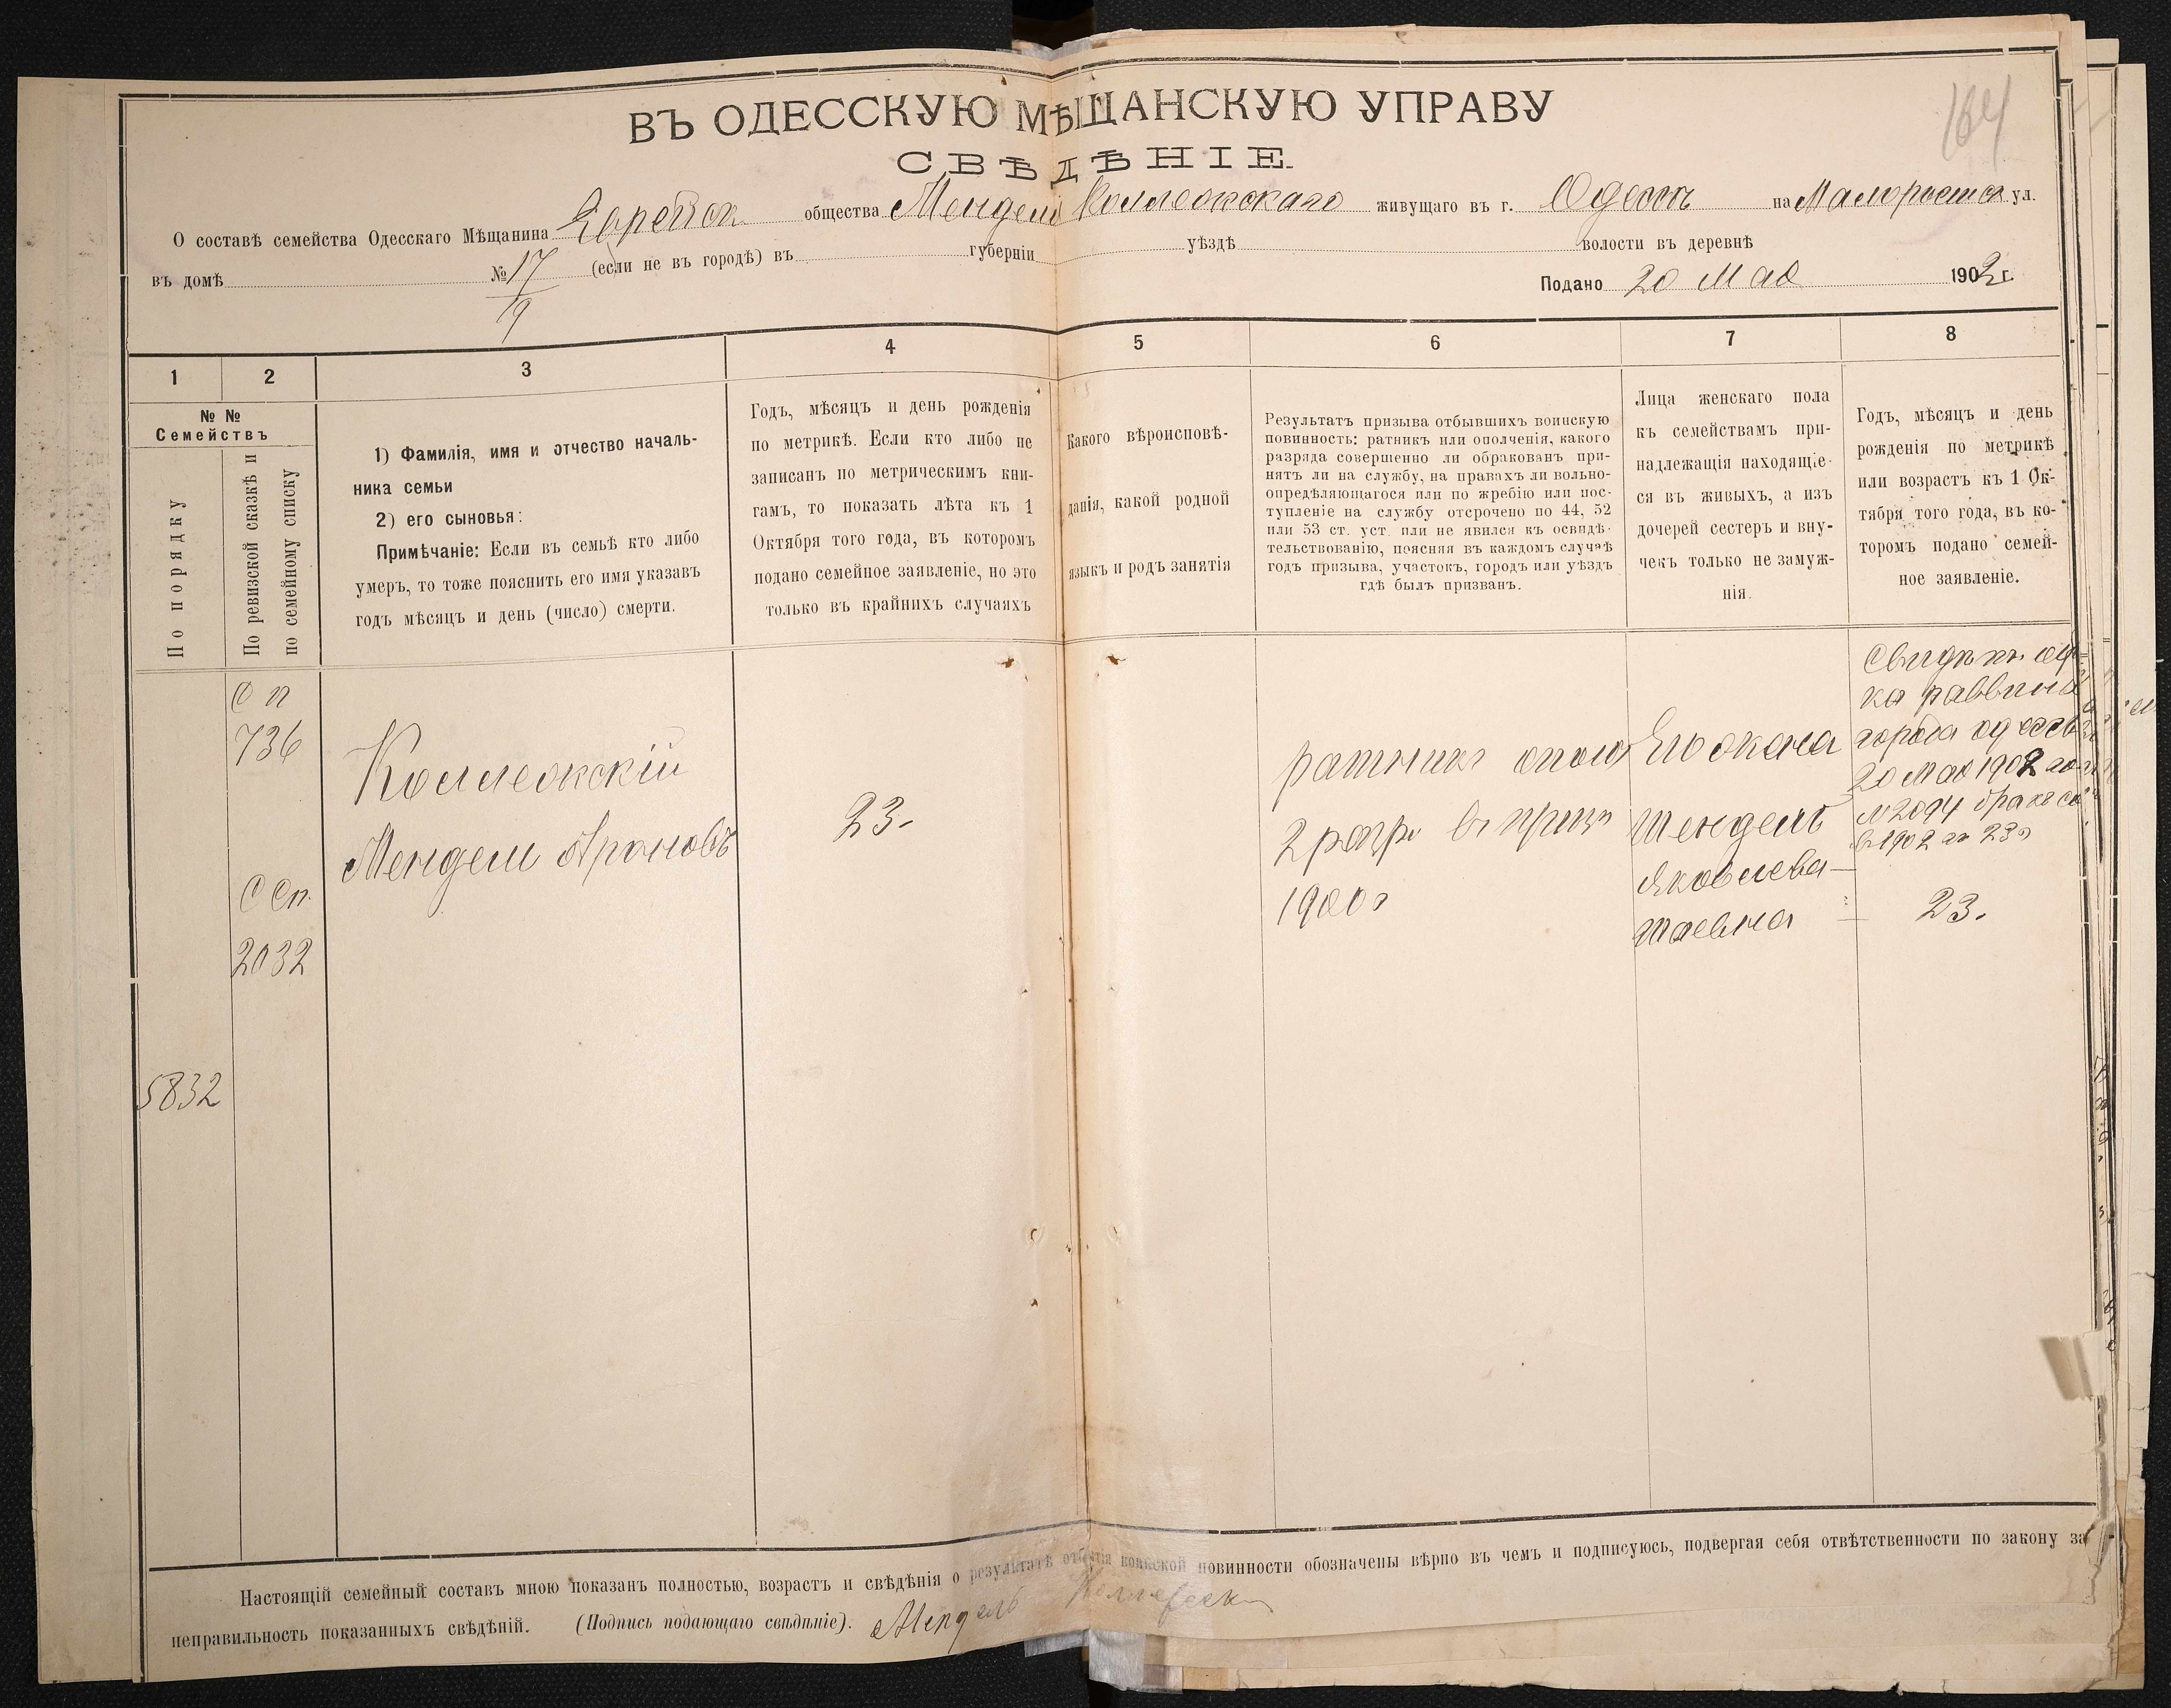 164
ВЪ ОДЕССКУЮ МѢЩАНСКУЮ УПРАВУ
СВѢДѢНІЕ
О составѣ семейства Одесскаго Мѣщанина Еврейск общества Мендель живущаго въ г. Одессѣ на ул.
въ домѣ № 17/9 (если не въ городѣ) въ губерніи уѣздѣ волости въ деревнѣ
Подано 20 Мая 1902 г.
1 2 3 4 5 6 7 8
№ №
Семействъ
По порядку
По ревизской сказкѣ и
по семейному списку
1) Фамилія, имя и отчество началь-
ника семьи
2) его сыновья:
Примѣчаніе: Если въ семьѣ кто либо
умеръ, то тоже пояснить его имя указавъ
годъ мѣсяцъ и день (число) смерти.
Годъ, мѣсяцъ и день рожденія
по метрикѣ. Если кто либо не
записанъ по метрическимъ кни-
гамъ, то показать лѣта къ 1
Октября того года, въ которомъ
подано семейное заявленіе, но это
только въ крайнихъ случаяхъ
Какого вѣроисповѣ-
данія, какой родной
языкъ и родъ занятія
Результатъ призыва отбывшихъ воинскую
повинность: ратникъ или ополченія, какого
разряда совершенно ли обракованъ при-
нятъ ли на службу, на правахъ ли вольно-
опредѣляющагося или по жребію или пос-
тупленіе на службу отсрочено по 44, 52
или 53 ст. уст. или не явился къ освидѣ-
тельствованію, поясняя въ каждомъ случаѣ
годъ призыва, участокъ, городъ или уѣздъ
гдѣ былъ призванъ.
Лица женскаго пола
къ семействамъ при-
надлежащія находящіе-
ся въ живыхъ, а изъ
дочерей сестеръ и вну-
чекъ только не замуж-
нія.
Годъ, мѣсяцъ и день
рожденія по метрикѣ
или возрастъ къ 1 Ок-
тября того года, въ ко-
торомъ подано семей-
ное заявленіе.
736
2032
5832
Мендель Ароновъ
23.
ратник опол
2 разр в призыв
1900 г
Его жена
Шендель
Яковлева-
Шаевна
раввина
города Одессы
20 Мая 1902 го
№ 2094
в 1902 го 23 г
23.
Настоящій семейный составъ мною показанъ полностью, возрастъ и свѣдѣнія о результатѣ отбытія воинской повинности обозначены вѣрно въ чемъ и подписуюсь, подвергая себя отвѣтственности по закону за
неправильность показанныхъ свѣдѣній. (Подпись подающаго свѣдѣніе). Мендель